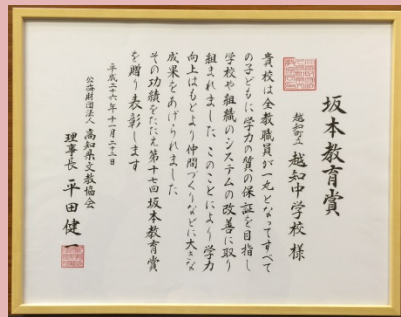 坂本教育賞
越知町立 越知中学校 様
貴校は全教職員が一丸となってすべて
の子どもに、学力の質の保証を目指し
学校や組織のシステムの改善に取り
組まれました このことにより学力
向上はもとより仲間づくりなどに大きな
成果をあげられました
その功績をたたえ第十七回坂本教育賞
を贈り表彰します
平成二十六年十一月二十三日
公益財団法人 高知県文教協会
理事長 平田健一